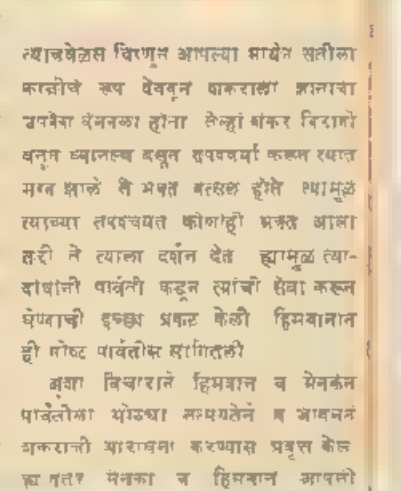 त्याचवेळेस विष्णून आपल्या मायेन सतीला
कालीचे रूप देववून शंकराला ज्ञानाचा
उपदेश देवनला होता तेव्हां शंकर विरागी
बनून ध्यानस्थ बसून तपश्चर्या करून त्यात
मग्न झाले ते भक्त वत्सल होते त्यामुळे
त्याच्या तपश्चर्येत कोणाही भक्त आला
तरी ते त्याला दर्शन देत ह्यामुळे त्या-
दोघांनी पार्वती कडून त्यांची सेवा करून
घेण्याची इच्छा प्रकट केली हिमवानान
ही गोष्ट पार्वतीस सांगितली
अशा विचाराने हिमवान व मेनकेन
पार्वतीला मोठ्या व आवडनं
शंकराची आराधना करण्यास प्रवृत्त केल
ह्या नंतर मेनका व हिमवान आपली